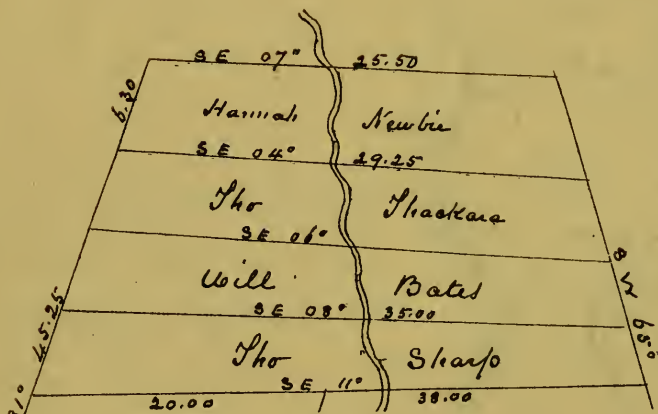 SE 07° 25.50
6.30
Hannah Newbie
SE 04° 29.25
Tho Thackara
SE 06°
Will Bates
SE 08° 35.00
45.25
65°
Tho Sharp
SE 11°
20.00 38.00